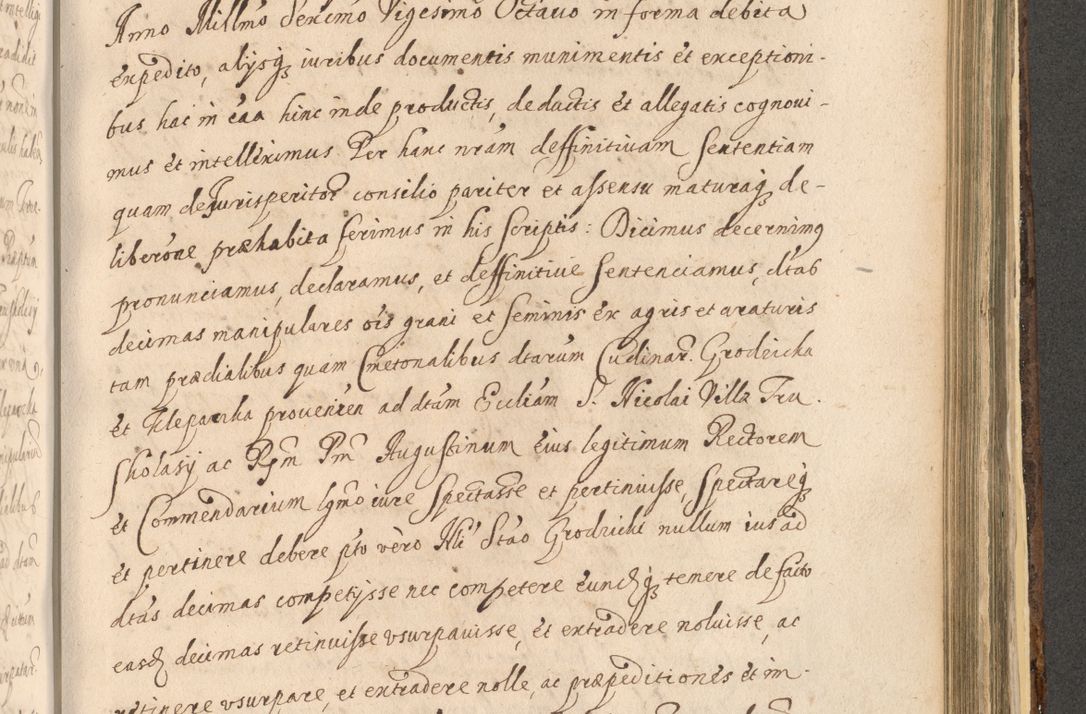 Anno Millmo decimo Vigesimo Octavo in forma debita
expedito, alijsq3 iuribus documentis munimentis et exceptioni-
bus hac in caa hinc inde productis, deductis et allegatis cognovi-
mus et intelleximus Per hanc nram deffinitivam sententiam
quam de Jurisperitor consilio pariter et assensu maturaq3 de-
liberone præhabita ferimus in his scriptis: Dicimus decernimus
pronunciamus, declaramus, et deffinitive sentenciamus, dtas
decimas manipulares ois grani et seminis ex agris et araturis
tam prædialibus quam Cmetonalibus dtarum Grodzicka
et provenien ad dtam Eccliam S. Nicolai Villæ Tru.
skolasy ac Rm Pm Augustinum eius legitimum Rectorem
et Commendarium lgmo iure spectasse et pertinuisse, spectareq3
et pertinere debere pto vero Stao Grodzicki nullum ius ad
dtas decimas competijsse nec competere eundq3 temere de facto
easd decimas retinuisse usurpavisse, et extradere noluisse, ac
retinere usurpare, et extradere nolle, ac præpeditiones et im-